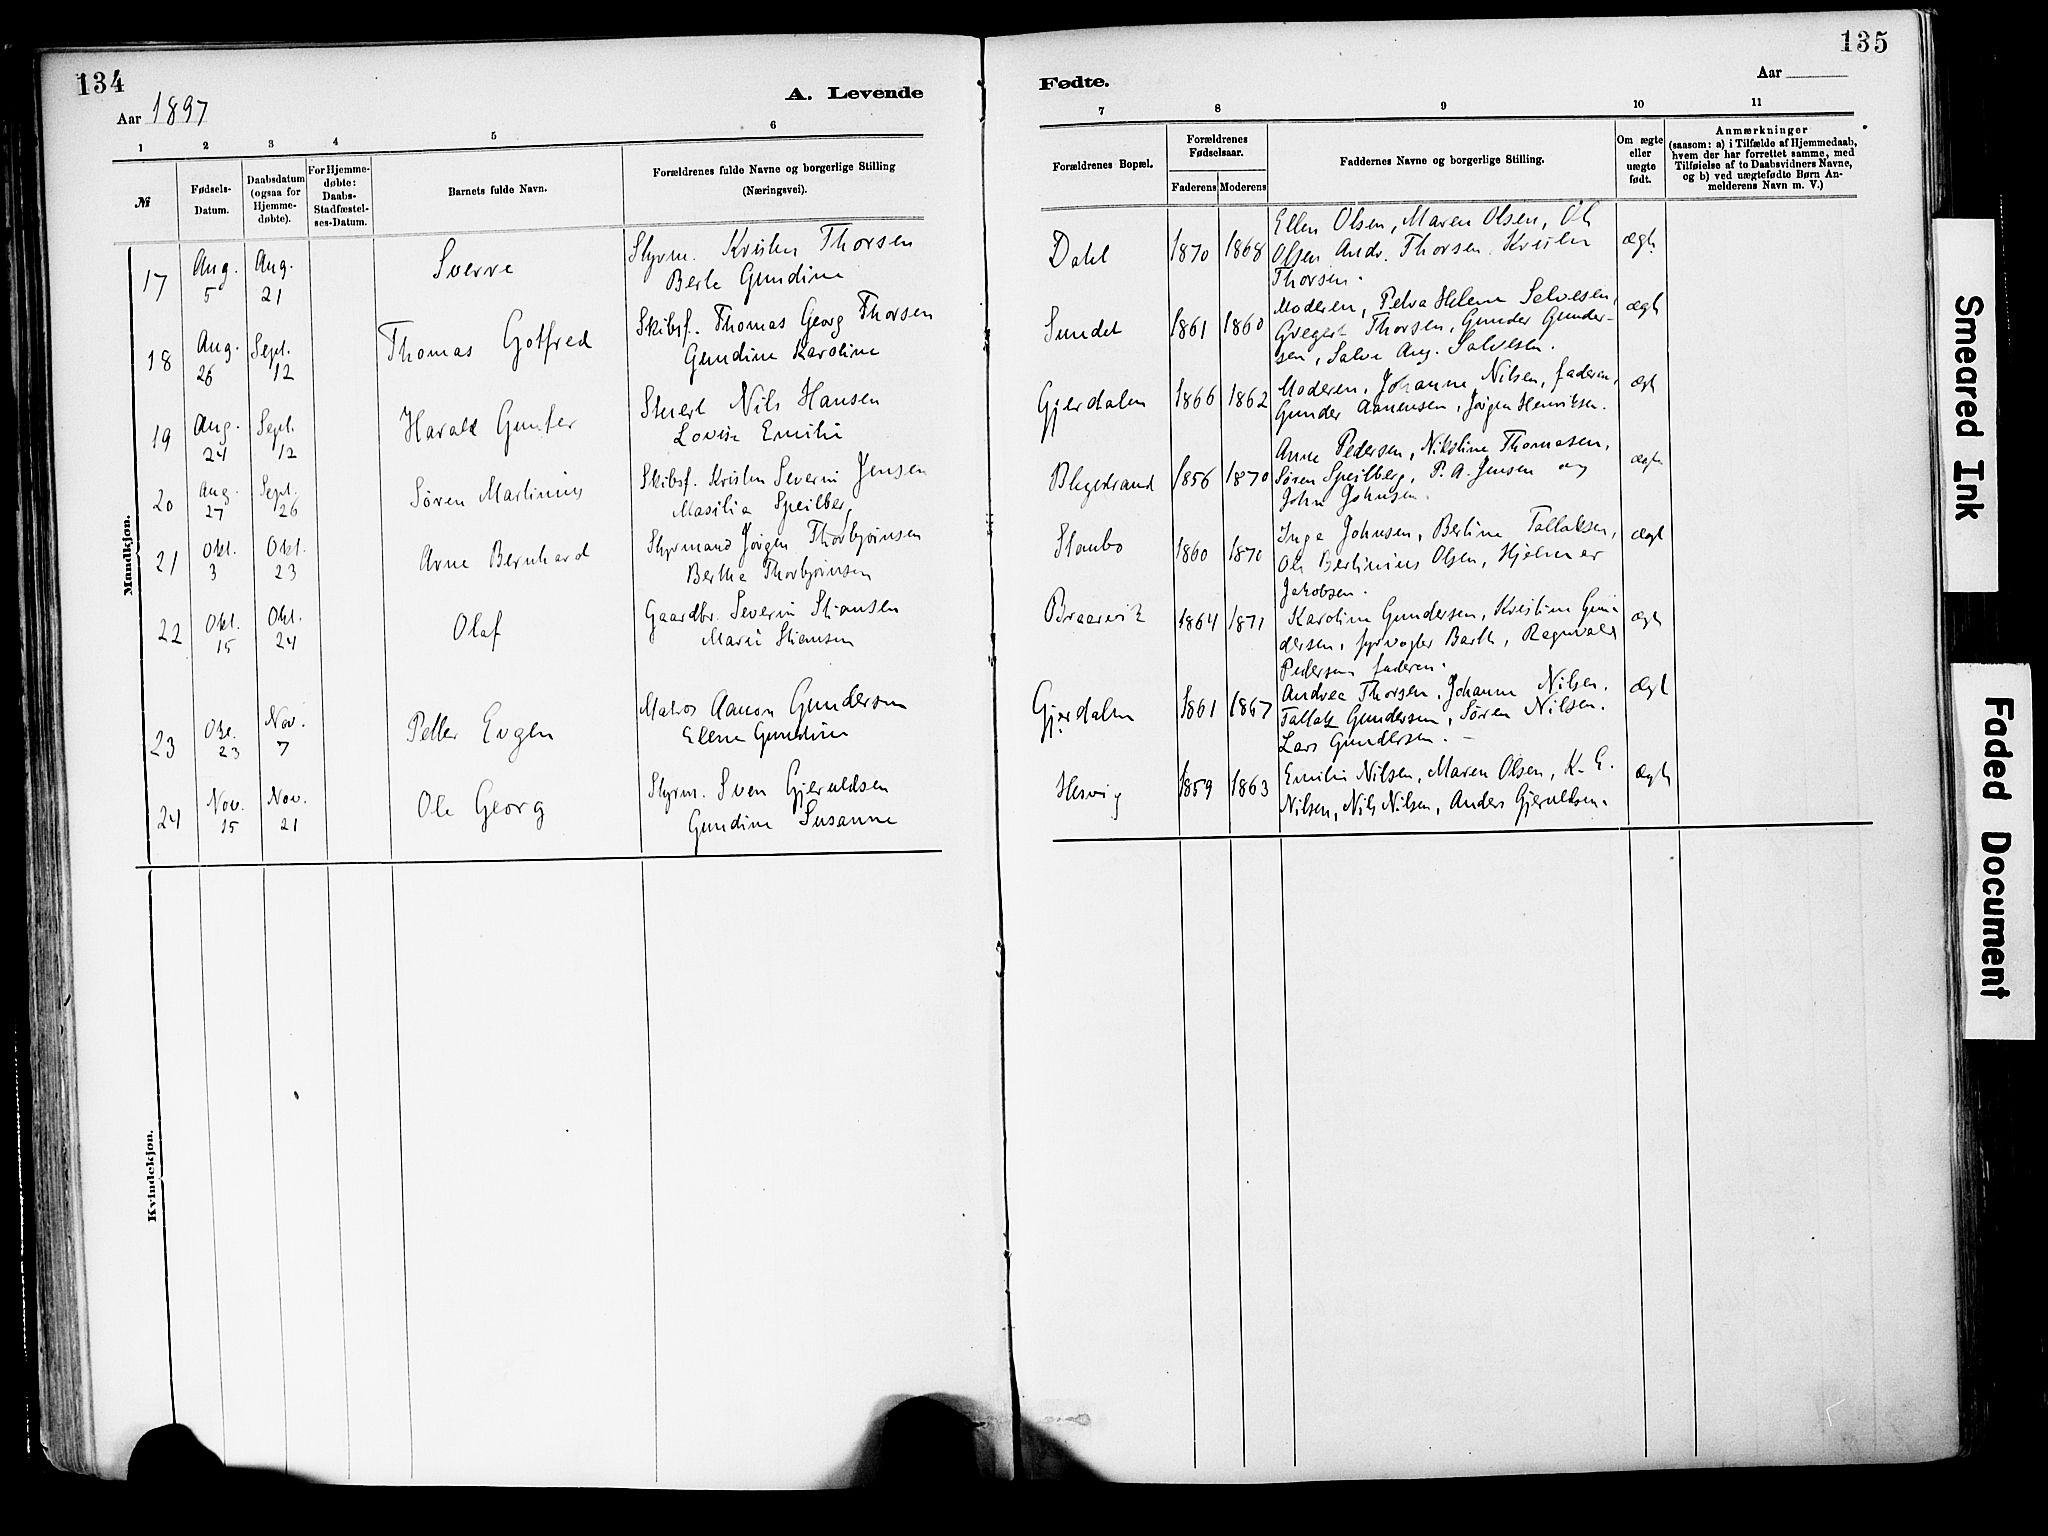 134
Aar 1897
A. Levende
1 2 3 4 5 6
№ Fødsels-Datum. Daabsdatum (ogsaa for Hjemme-døbte). For Hjemme-døbte: Daabs-Stadfæstel-ses-Datum. Barnets fulde Navn. Forældrenes fulde Navne og borgerlige Stilling (Næringsvei).
Mandkjøn.
17 Aug. 5 Aug. 21 Sverre Styrm. Kristen Thorsen
Berte Gundine
18 Aug. 26 Sept. 12 Thomas Gotfred Skibsf. Thomas Georg Thorsen
Gundine Karoline
19 Aug. 24 Sept. 12 Harald Gunter Stuert Nils Hansen
Lovise Emilie
20 Aug. 27 Sept. 26 Søren Martinius Skibsf. Kristen Severin Jensen
Masilia Speilberg
21 Okt. 3 Okt. 23 Arne Bernhard Styrmand Jørgen Thorbjørnsen
Berthe Thorbjørnsen
22 Okt. 15 Okt. 24 Olaf Gaardbr. Severin Stiansen
Marie Stiansen
23 Okt. 23 Nov. 7 Petter Eugen Matros Aanon Gundersen
Elene Gundine
24 Nov. 15 Nov. 21 Ole Georg Styrm. Sven Gjeruldsen
Gundine Susanne
Kvindekjøn.
135
Fødte.
Aar
7 8 9 10 11
Forældrenes Bopæl. Forældrenes Fødselsaar. Faderens Moderens Faddernes Navne og borgerlige Stilling. Om ægte eller uægte født. Anmærkninger
(saasom: a) i Tilfælde af Hjemmedaab,
hvem der har forrettet samme, med
Tilføielse af to Daabsvidners Navne,
og b) ved uægtefødte Børn An-
melderens Navn m. V.)
Dahl 1870 1868 Ellen Olsen, Maren Olsen, Ole
Olsen Andr. Thorsen. Kristen
Thorsen.
ægte
Sundet 1861 1860 Moderen, Petra Helene Salvesen,
Gregert Thorsen, Gunder Gunder-
sen, Salve Aug. Salvesen.
ægte
Gjerdalen 1866 1862 Moderen, Johanne Nilsen, faderen,
Gunder Aanensen, Jørgen Henriksen.
ægt
1856 1870 Anne Pedersen, Nikoline Thomasen,
Søren Speilberg, P. A. Jensen og
John Johnsen.
ægte
Stambo 1860 1870 Inga Johnsen, Berline Tallaksen,
Ole Bertinius Olsen, Hjelmer
Jakobsen.
ægt
Braarvik 1864 1871 Karoline Gundersen, Kristine Gun-
dersen, fyrvogter Barth, Ragnvald
Pedersen faderen.
ægt
Gjerdalen 1861 1867 Andrea Thorsen, Johanne Nilsen.
Tallak Gundersen, Søren Nilsen.
Lars Gundersen. -
ægt
Hesvig 1859 1863 Emilie Nilsen, Maren Olsen, K. E.
Nilsen, Nils Nilsen, Anders Gjeruldsen.
ægte
Smeared Ink
Faded Document